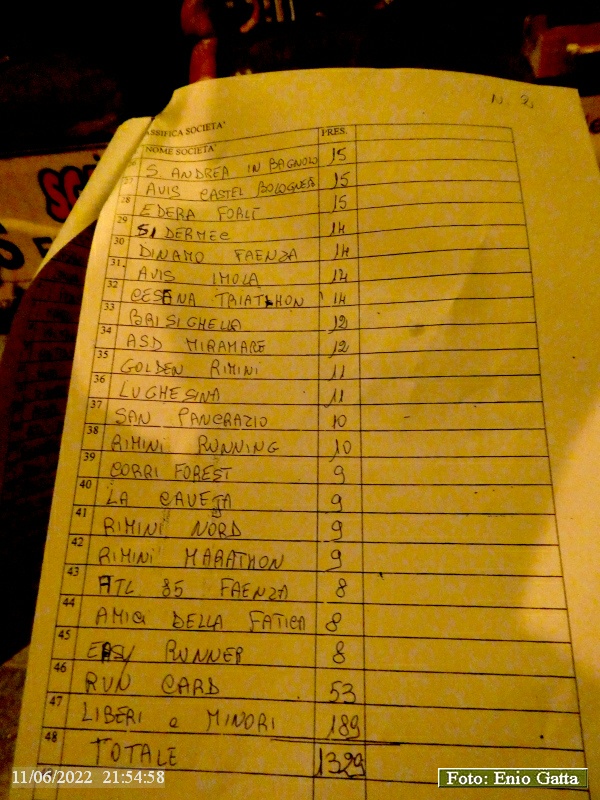 N. 2
ASSIFICA SOCIETA' PRES.
NOME SOCIETA'
26 S. ANDREA IN BAGNOLO 15
27 AVIS CASTEL BOLOGNESE 15
28 EDERA FORLÌ 15
29 SIDERMEC 14
30 DINAMO FAENZA 14
31 AVIS IMOLA 14
32 CESENA TRIATHLON 14
33 BRISIGHELLA 12
34 ASD MIRAMARE 12
35 GOLDEN RIMINI 11
36 LUGHESINA 11
37 SAN PANCRAZIO 10
38 RIMINI RUNNING 10
39 CORRI FOREST 9
40 LA CAVEJA 9
41 RIMINI NORD 9
42 RIMINI MARATHON 9
43 ATL 85 FAENZA 8
44 AMICI DELLA FATICA 8
45 EASY RUNNER 8
46 RUN CARD 53
47 LIBERI e MINORI 189
48 TOTALE 1329
11/06/2022 21:54:58
Foto: Enio Gatta